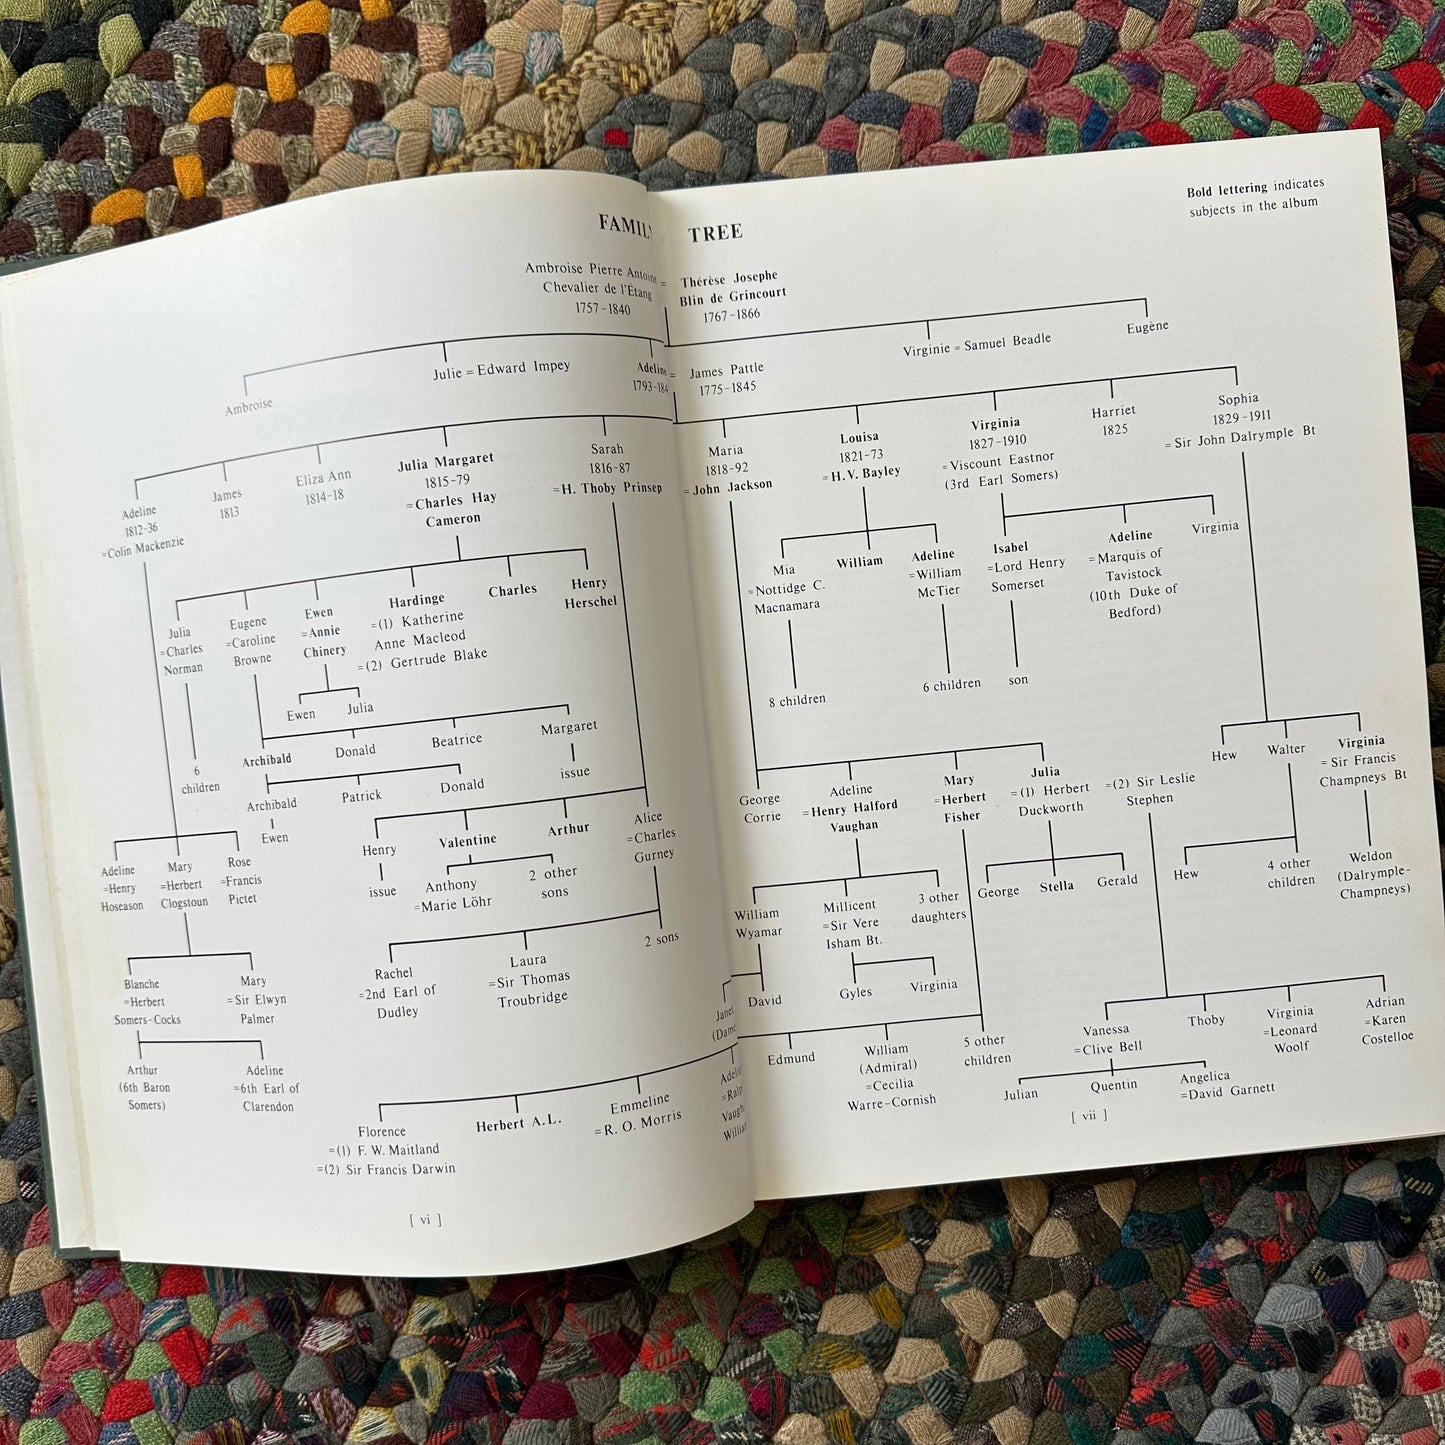 FAMIL TREE
Bold lettering indicates
subjects in the album
Ambroise Pierre Antoine =
Chevalier de l'Étang
1757-1840
Thérèse Josephe
Blin de Grincourt
1767-1866
Ambroise
Julie = Edward Impey
Adeline =
1793-184
James Pattle
1775-1845
Virginie = Samuel Beadle
Eugène
Adeline
1812-36
=Colin Mackenzie
James
1813
Eliza Ann
1814-18
Julia Margaret
1815-79
=Charles Hay
Cameron
Sarah
1816-87
=H. Thoby Prinsep
Maria
1818-92
=John Jackson
Louisa
1821-73
=H.V. Bayley
Virginia
1827-1910
=Viscount Eastnor
(3rd Earl Somers)
Harriet
1825
Sophia
1829-1911
=Sir John Dalrymple Bt
Julia
=Charles
Norman
Eugene
=Caroline
Browne
Ewen
=Annie
Chinery
Hardinge
=(1) Katherine
Anne Macleod
=(2) Gertrude Blake
Charles
Henry
Herschel
Mia
=Nottidge C.
Macnamara
William
Adeline
=William
McTier
Isabel
=Lord Henry
Somerset
Adeline
=Marquis of
Tavistock
(10th Duke of
Bedford)
Virginia
6
children
Ewen
Julia
8 children
6 children
son
Archibald
Donald
Beatrice
Margaret
issue
Archibald
Patrick
Donald
Ewen
Hew
Walter
Virginia
= Sir Francis
Champneys Bt
Henry
issue
Valentine
Arthur
Alice
=Charles
Gurney
Anthony
=Marie Löhr
2 other
sons
George
Corrie
Adeline
=Henry Halford
Vaughan
Mary
=Herbert
Fisher
Julia
=(1) Herbert
Duckworth
=(2) Sir Leslie
Stephen
Adeline
=Henry
Hoseason
Mary
=Herbert
Clogstoun
Rose
=Francis
Pictet
George
Stella
Gerald
Hew
4 other
children
Weldon
(Dalrymple-
Champneys)
William
Wyamar
Millicent
=Sir Vere
Isham Bt.
3 other
daughters
Rachel
=2nd Earl of
Dudley
Laura
=Sir Thomas
Troubridge
2 sons
Blanche
=Herbert
Somers-Cocks
Mary
=Sir Elwyn
Palmer
Janet
(Dame
David
Gyles
Virginia
Arthur
(6th Baron
Somers)
Adeline
=6th Earl of
Clarendon
Vanessa
=Clive Bell
Thoby
Virginia
=Leonard
Woolf
Adrian
=Karen
Costelloe
Florence
=(1) F. W. Maitland
=(2) Sir Francis Darwin
Herbert A.L.
Emmeline
=R. O. Morris
Adeline
=Ralp
Vaug
Willia
Edmund
William
(Admiral)
=Cecilia
Warre-Cornish
5 other
children
Julian
Quentin
Angelica
=David Garnett
[ vi ]
[ vii ]